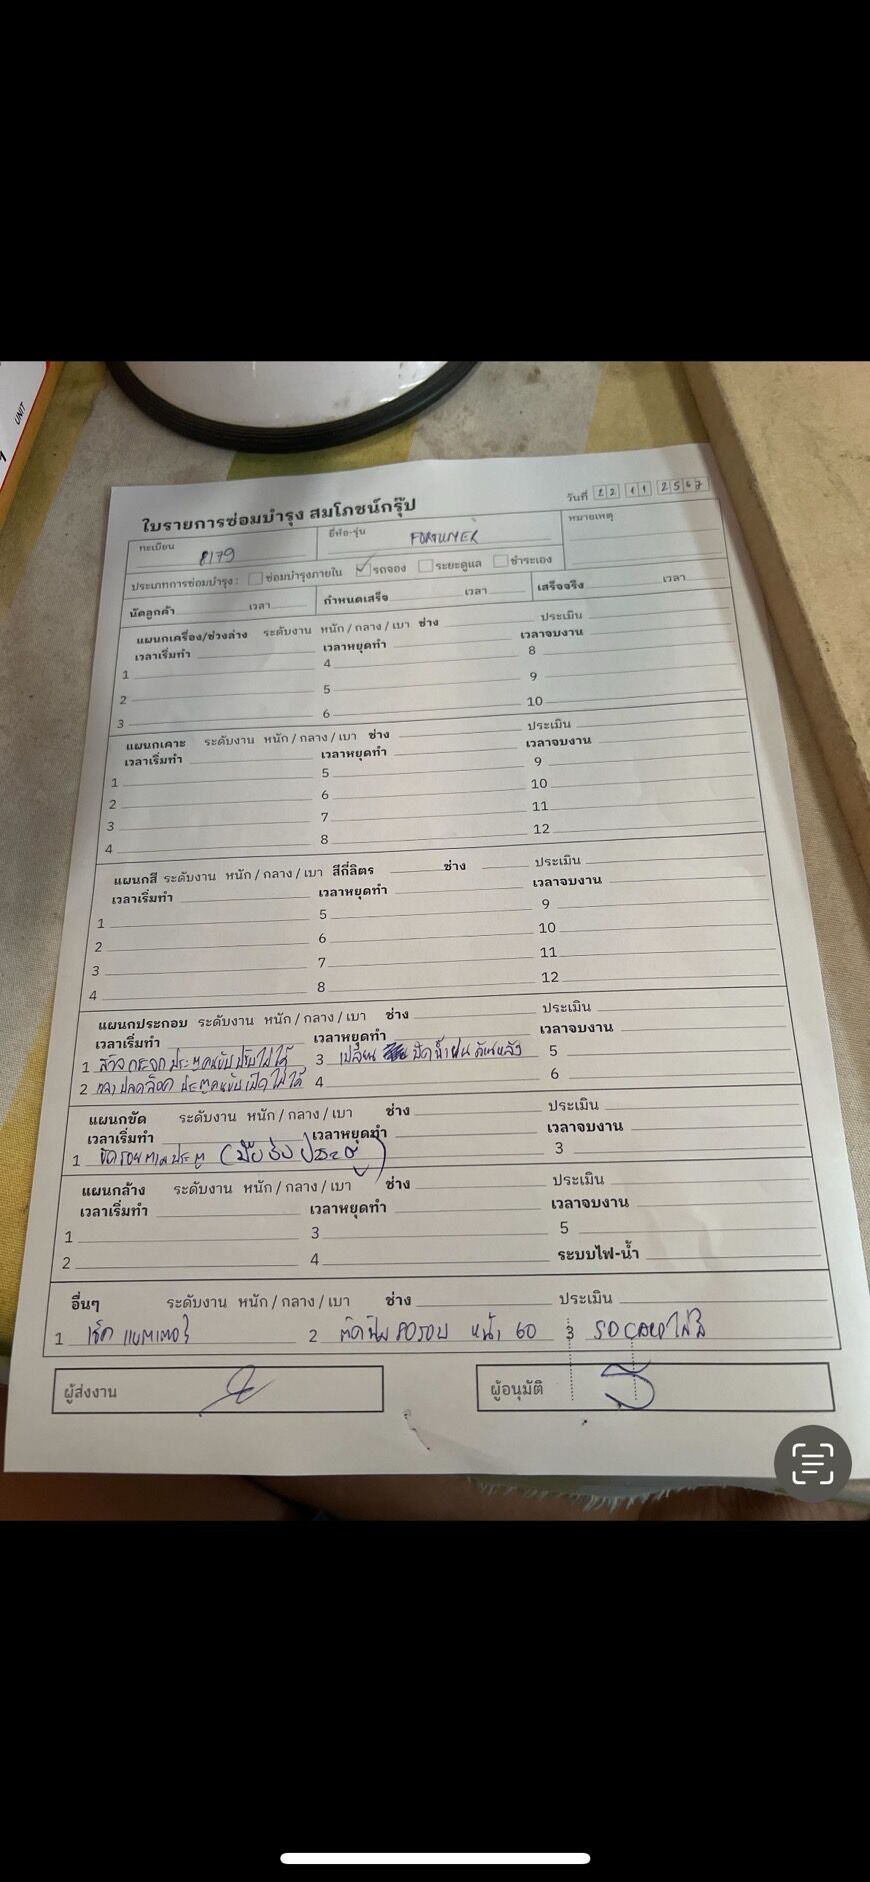 UNIT
ใบรายการซ่อมบำรุง สมโภชน์กรุ๊ป วันที่ 22 11 2567
ทะเบียน 8179 ยี่ห้อ-รุ่น FORTUNER หมายเหตุ
ประเภทการซ่อมบำรุง : ซ่อมบำรุงภายใน ✓ รถจอง ระยะดูแล ชำระเอง
นัดลูกค้า เวลา กำหนดเสร็จ เวลา เสร็จจริง เวลา
แผนกเครื่อง/ช่วงล่าง ระดับงาน หนัก / กลาง / เบา ช่าง ประเมิน
เวลาเริ่มทำ เวลาหยุดทำ เวลาจบงาน
1 4 8
2 5 9
3 6 10
แผนกเคาะ ระดับงาน หนัก / กลาง / เบา ช่าง ประเมิน
เวลาเริ่มทำ เวลาหยุดทำ เวลาจบงาน
1 5 9
2 6 10
3 7 11
4 8 12
แผนกสี ระดับงาน หนัก / กลาง / เบา สีกี่ลิตร ช่าง ประเมิน
เวลาเริ่มทำ เวลาหยุดทำ เวลาจบงาน
1 5 9
2 6 10
3 7 11
4 8 12
แผนกประกอบ ระดับงาน หนัก / กลาง / เบา ช่าง ประเมิน
เวลาเริ่มทำ เวลาหยุดทำ เวลาจบงาน
1 กระจกประตูคนขับปรับไม่ได้ 3 เปลี่ยน ปัดน้ำฝน ด้านหลัง 5
2 ปลดล็อค ประตูคนขับเปิดไม่ได้ 4 6
แผนกขัด ระดับงาน หนัก / กลาง / เบา ช่าง ประเมิน
เวลาเริ่มทำ เวลาหยุดทำ เวลาจบงาน
1 ขัดรอยตามประตู (มือจับ ประตู) 3
แผนกล้าง ระดับงาน หนัก / กลาง / เบา ช่าง ประเมิน
เวลาเริ่มทำ เวลาหยุดทำ เวลาจบงาน
1 3 5
2 4 ระบบไฟ-น้ำ
อื่นๆ ระดับงาน หนัก / กลาง / เบา ช่าง ประเมิน
1 เช็ค แบตเตอรี่ 2 ติดฟิล์มรอบ หน้า 60 3 SD CARD
ผู้ส่งงาน ผู้อนุมัติ